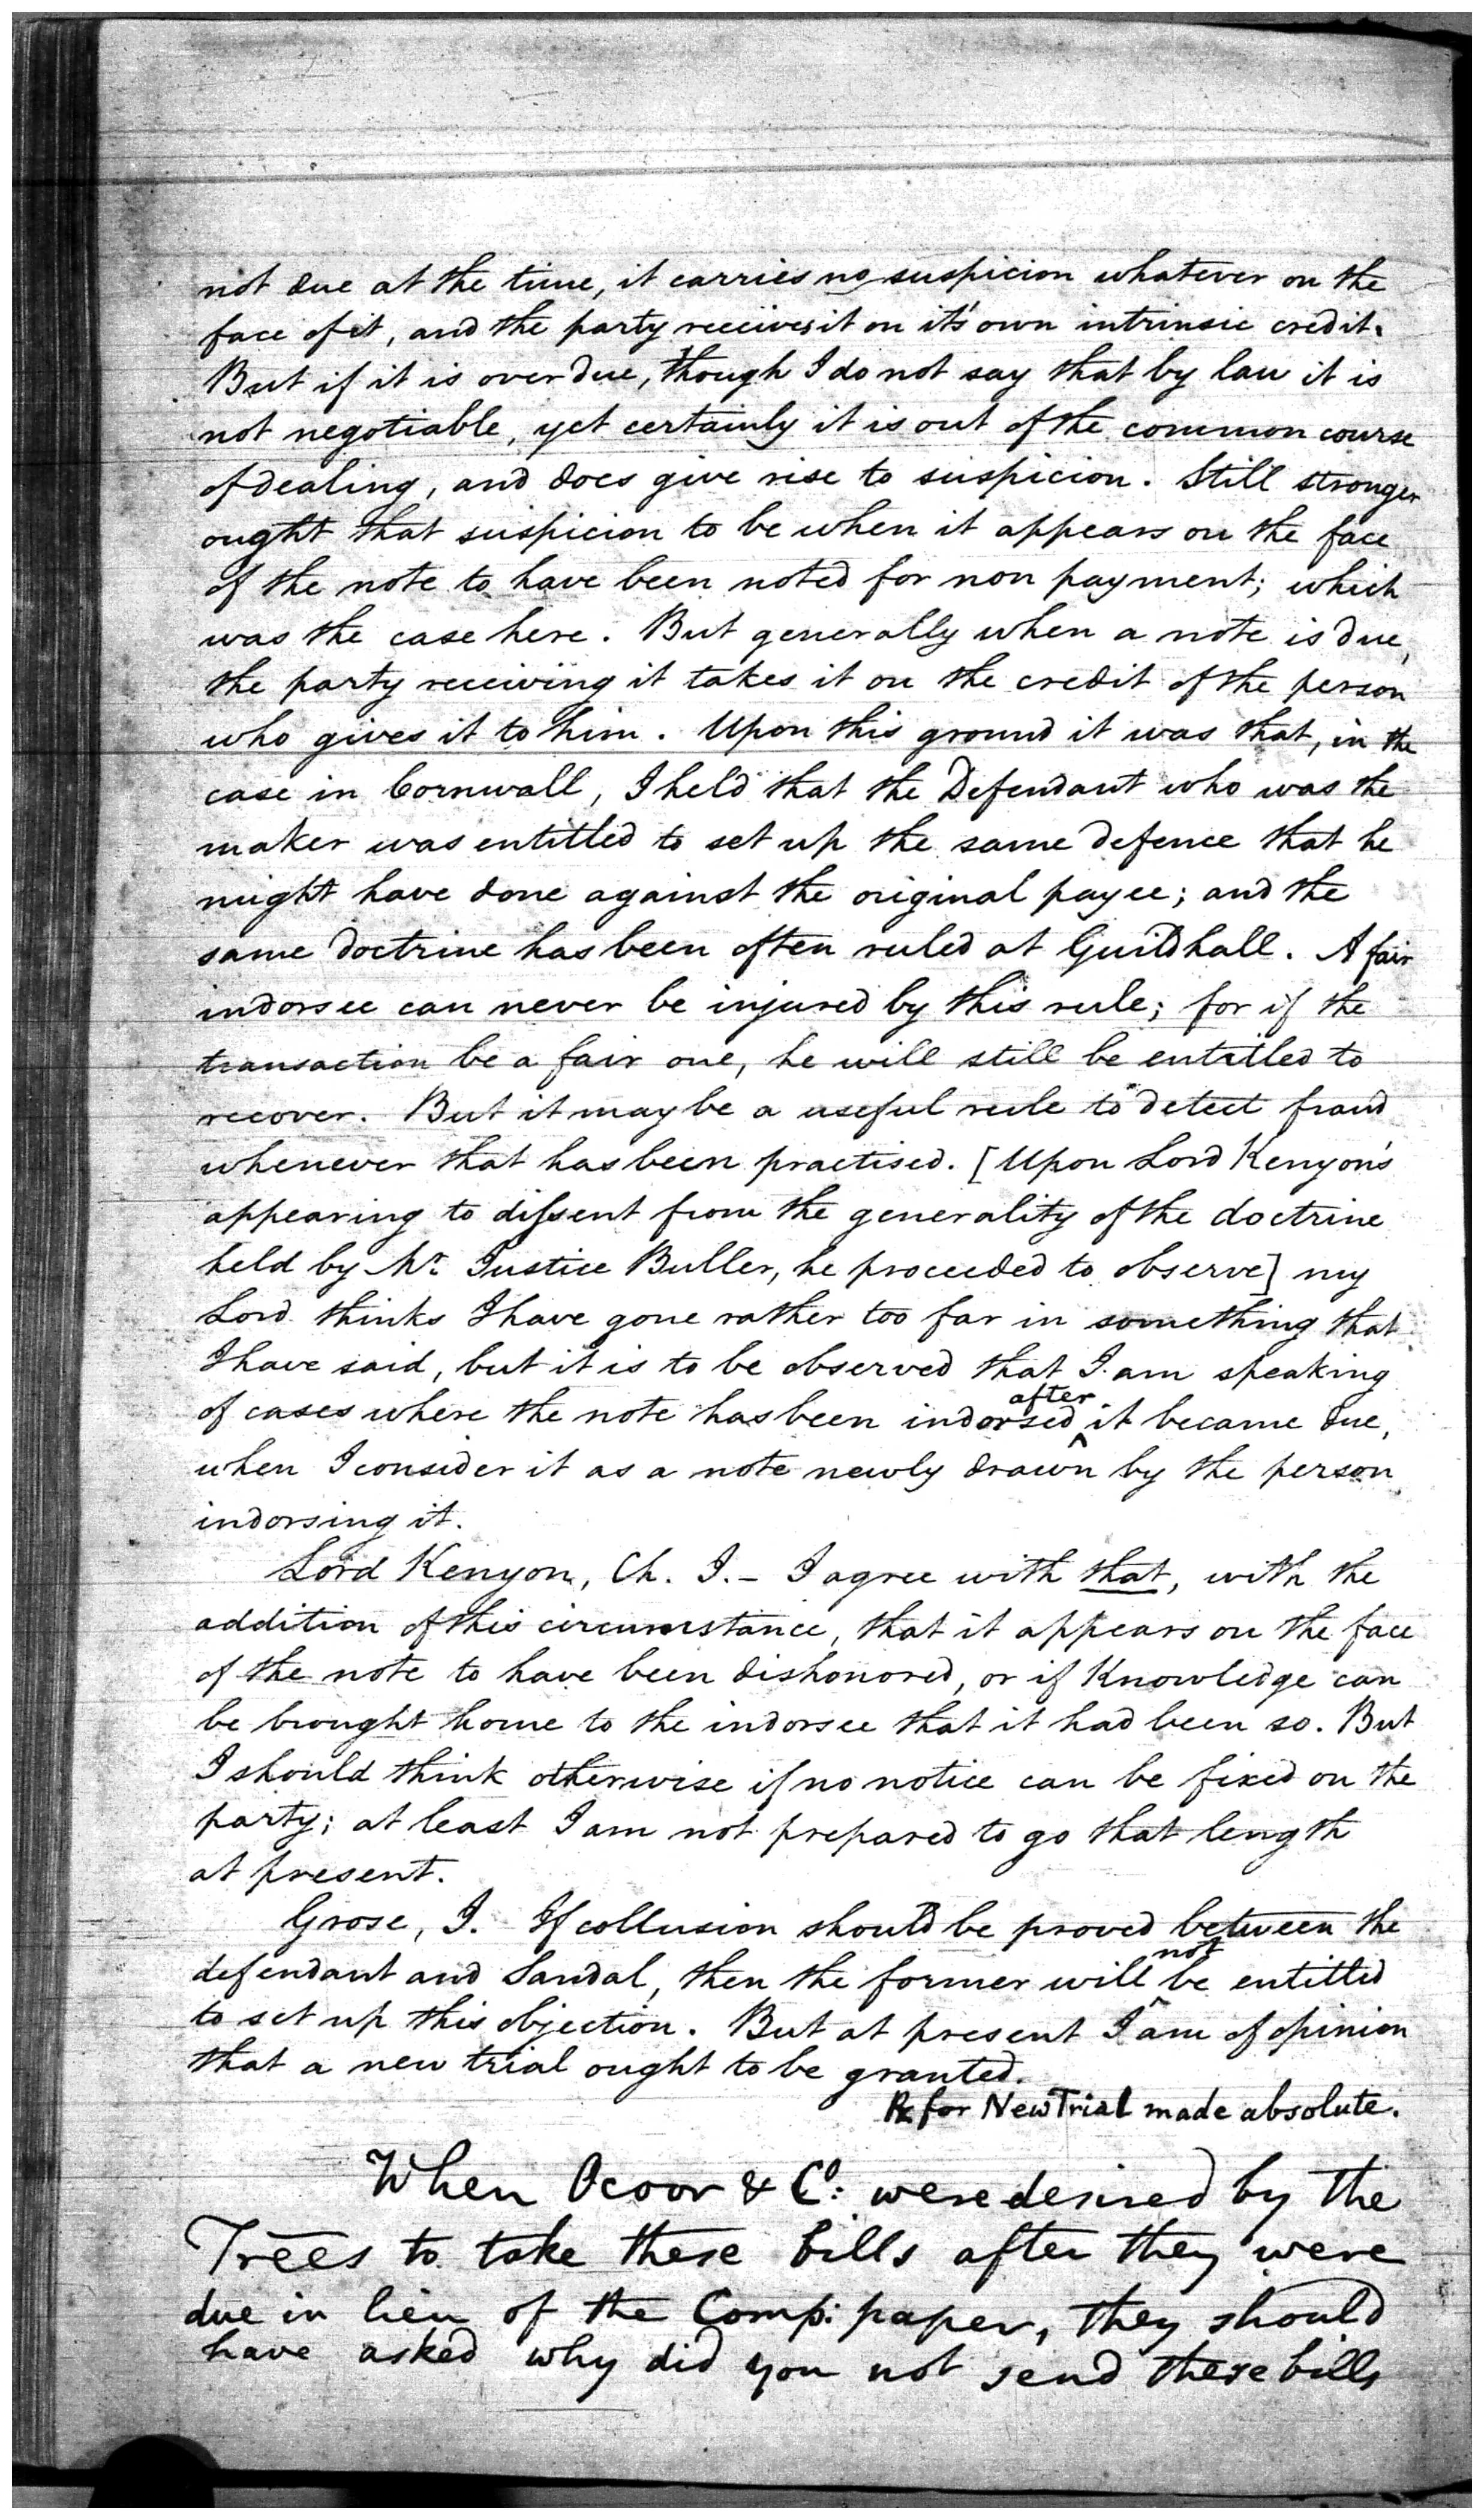 not due at the time, it carries no suspicion whatever on the
face of it, and the party receives it on it's own intrinsic credit.
But if it is over due, though I do not say that by law it is
not negotiable, yet certainly it is out of the common course
of dealing, and does give rise to suspicion. Still stronger
ought that suspicion to be when it appears on the face
of the note to have been noted for non payment; which
was the case here. But generally when a note is due,
the party receiving it takes it on the credit of the person
who gives it to him. Upon this ground it was that, in the
case in Cornwall, I held that the Defendant who was the
maker was entitled to set up the same defence that he
might have done against the original payee; and the
same doctrine has been often ruled at Guildhall. A fair
indorsee can never be injured by this rule; for if the
transaction be a fair one, he will still be entitled to
recover. But it may be a useful rule to detect fraud
whenever that has been practised. [Upon Lord Kenyon's
appearing to dissent from the generality of the doctrine
held by Mr. Justice Buller, he proceeded to observe] my
Lord thinks I have gone rather too far in something that
I have said, but it is to be observed that I am speaking
of cases where the note has been indorsed after it became due,
when I consider it as a note newly drawn by the person
indorsing it.
Lord Kenyon, Ch. J. - I agree with that, with the
addition of this circumstance, that it appears on the face
of the note to have been dishonored, or if Knowledge can
be brought home to the indorsee that it had been so. But
I should think otherwise if no notice can be fixed on the
party; at least I am not prepared to go that length
at present.
Grose, J. If collusion should be proved between the
defendant and Sandal, then the former will not be entitled
to set up this objection. But at present I am of opinion
that a new trial ought to be granted.
R for New Trial made absolute.
When & Co: were desired by the
Trees to take these bills after they were
due in lieu of the Comp: paper, they should
have asked why did you not send these bills